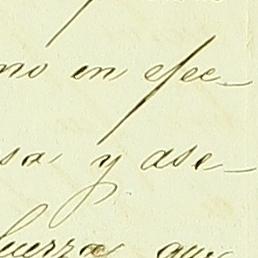 no en efec-
sa y ase-
fuerza que